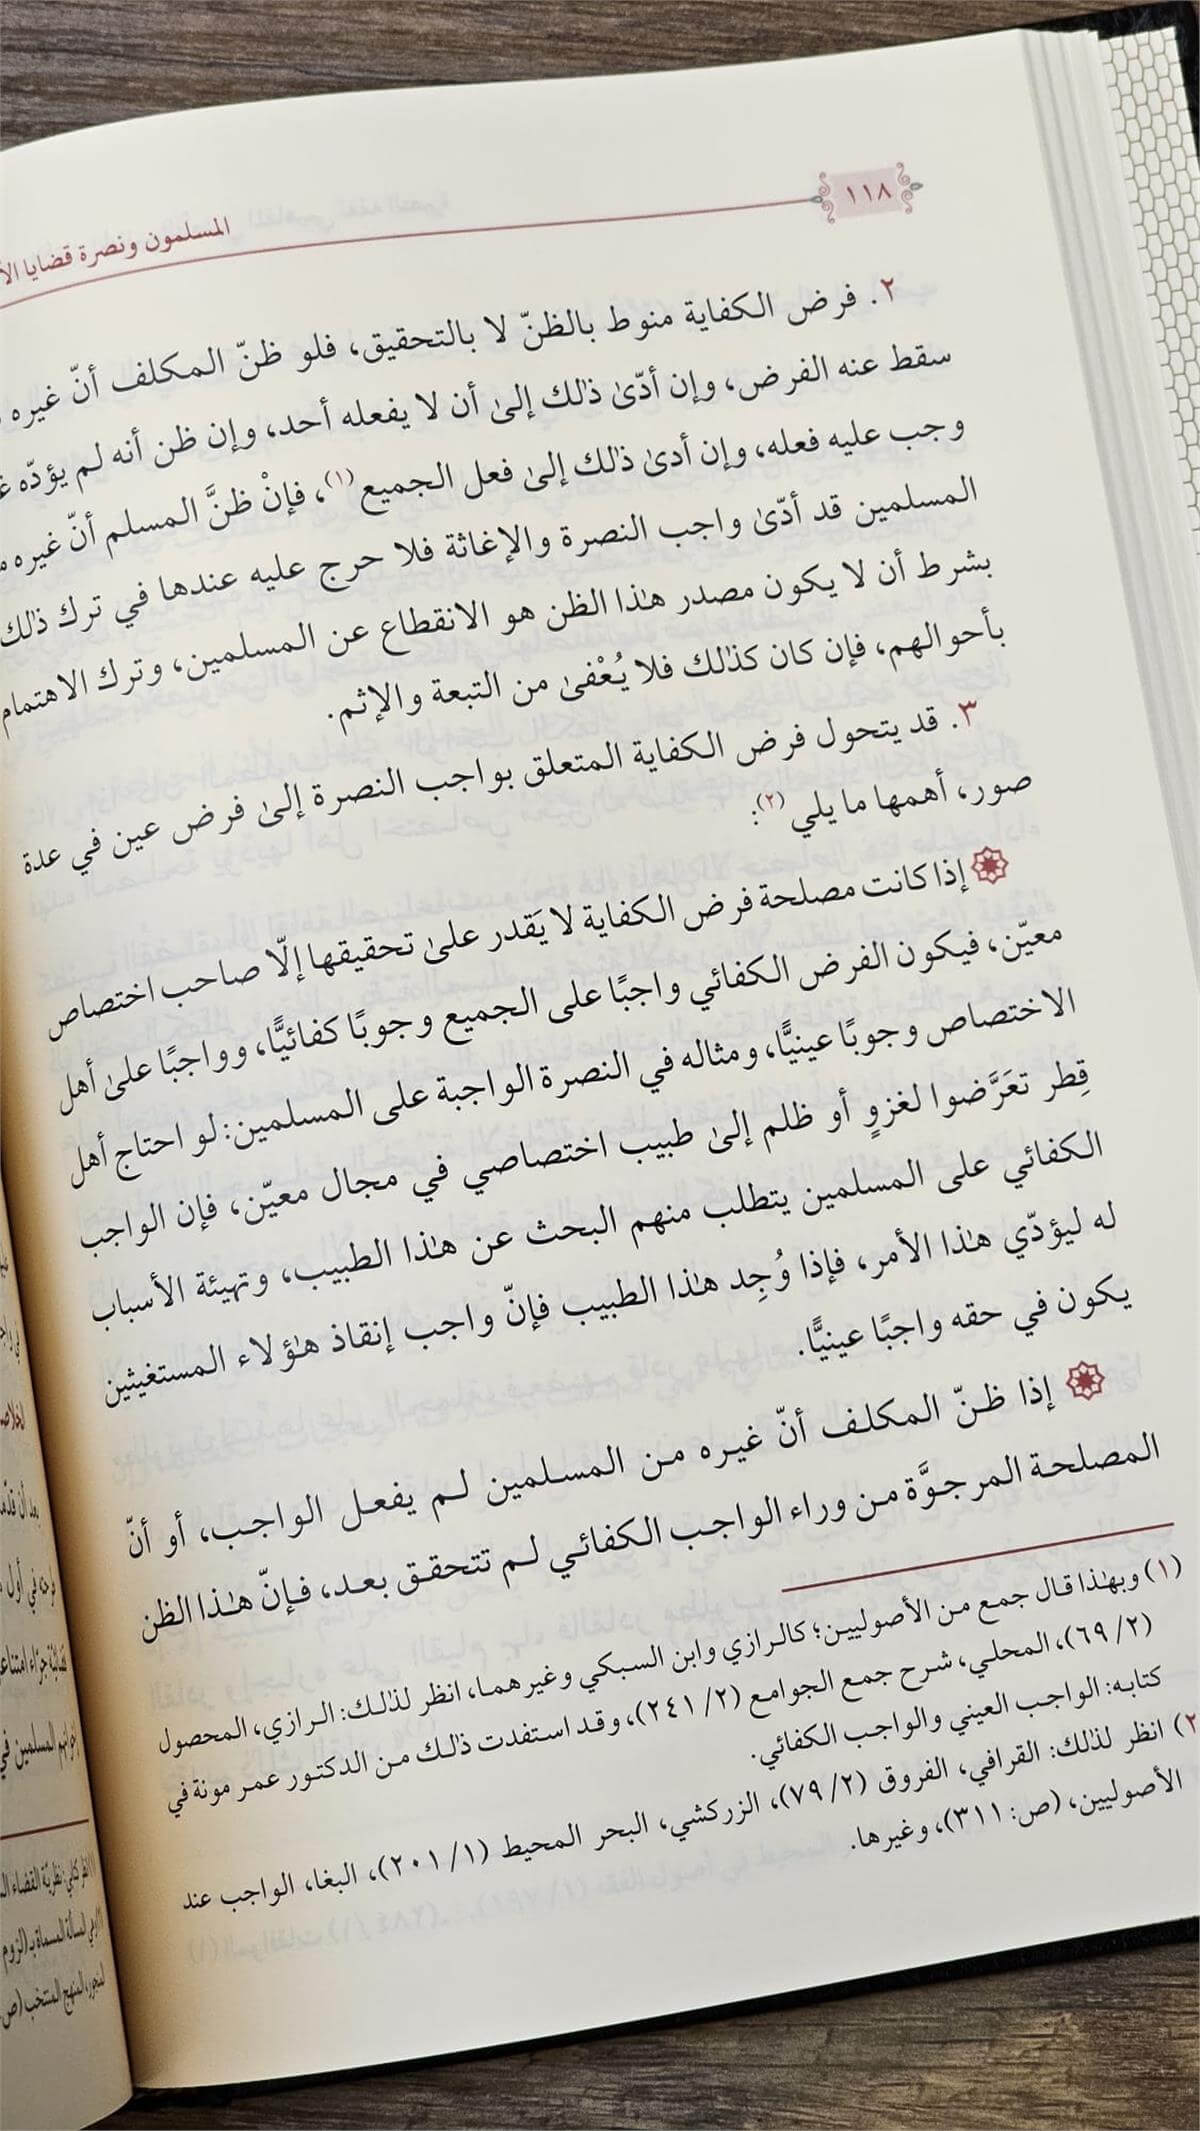 ١١٨
المسلمون ونصرة قضايا
٢. فرض الكفاية منوط بالظنّ لا بالتحقيق، فلو ظنّ المكلف أنّ غيره
سقط عنه الفرض، وإن أدّىٰ ذٰلك إلىٰ أن لا يفعله أحد، وإن ظن أنه لم يؤدّه
وجب عليه فعله، وإن أدىٰ ذٰلك إلىٰ فعل الجميع (١)، فإنْ ظنَّ المسلم أنّ غيره
المسلمين قد أدّىٰ واجب النصرة والإغاثة فلا حرج عليه عندها في ترك ذٰلك
بشرط أن لا يكون مصدر هٰذا الظن هو الانقطاع عن المسلمين، وترك الاهتمام
بأحوالهم، فإن كان كذٰلك فلا يُعْفىٰ من التبعة والإثم.
٣. قد يتحول فرض الكفاية المتعلق بواجب النصرة إلىٰ فرض عين في عدة
صور، أهمها ما يلي (٢):
إذا كانت مصلحة فرض الكفاية لا يَقدر علىٰ تحقيقها إلّا صاحب اختصاص
معيّن، فيكون الفرض الكفائي واجبًا على الجميع وجوبًا كفائيًّا، وواجبًا علىٰ أهل
الاختصاص وجوبًا عينيًّا، ومثاله في النصرة الواجبة على المسلمين: لو احتاج أهل
قِطر تعَرَّضوا لغزوٍ أو ظلم إلىٰ طبيب اختصاصي في مجال معيّن، فإن الواجب
الكفائي على المسلمين يتطلب منهم البحث عن هٰذا الطبيب، وتهيئة الأسباب
له ليؤدّي هٰذا الأمر، فإذا وُجِد هٰذا الطبيب فإنّ واجب إنقاذ هٰؤلاء المستغيثين
يكون في حقه واجبًا عينيًّا.
إذا ظنّ المكلف أنّ غيره من المسلمين لم يفعل الواجب، أو أنّ
المصلحة المرجوَّة من وراء الواجب الكفائي لم تتحقق بعد، فإنّ هٰذا الظن
(١) وبهٰذا قال جمع من الأصوليين؛ كالرازي وابن السبكي وغيرهما، انظر لذٰلك: الرازي، المحصول
(٢/ ٦٩)، المحلي، شرح جمع الجوامع (٢/ ٢٤١)، وقد استفدت ذٰلك من الدكتور عمر مونة في
كتابه: الواجب العيني والواجب الكفائي.
٢) انظر لذٰلك: القرافي، الفروق (٢/ ٧٩)، الزركشي، البحر المحيط (١/ ٢٠١)، البغا، الواجب عند
الأصوليين، (ص: ٣١١)، وغيرها.